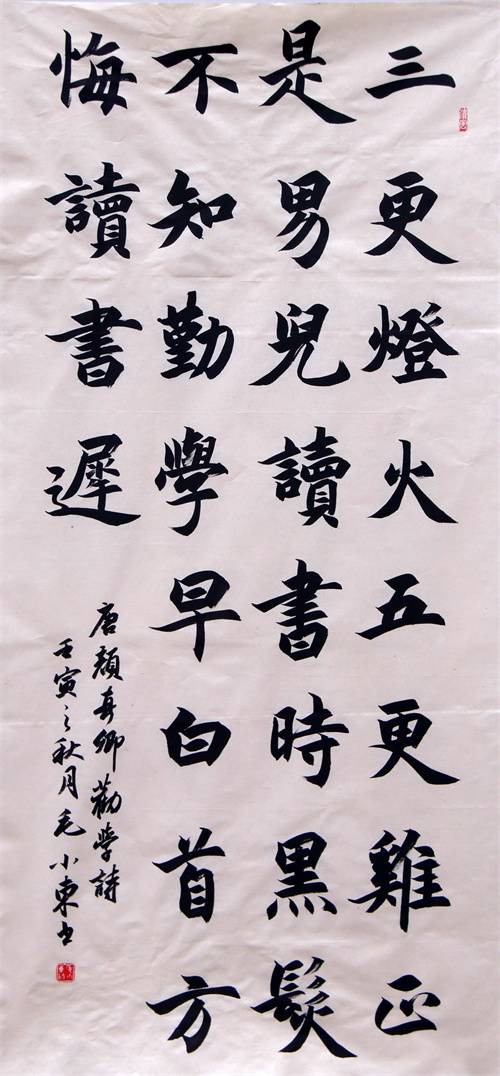 三更燈火五更雞正
是男兒讀書時黑髮
不知勤學早白首方
悔讀書遲
唐顏真卿勸學詩
壬寅之秋月毛小東書